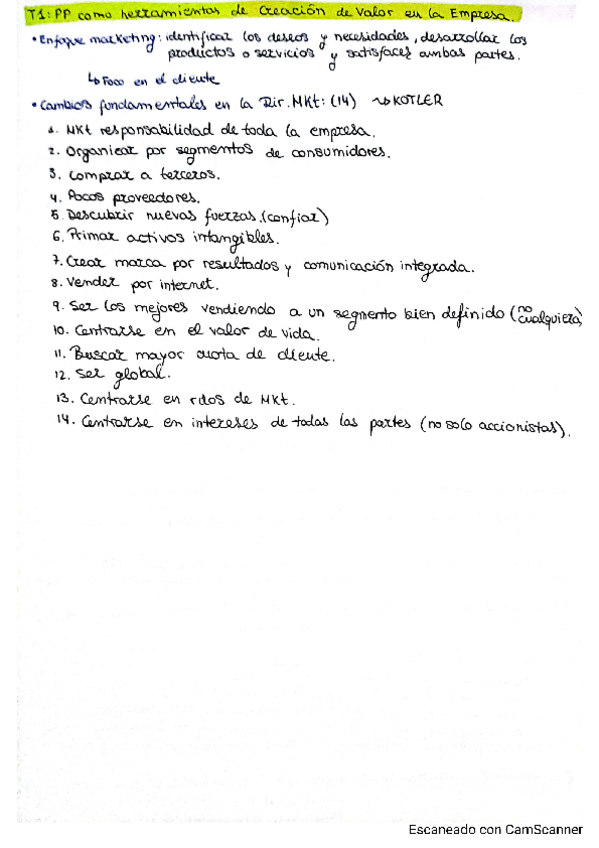 T1: PP como herramientas de Creación de Valor en la Empresa.
• Enfoque marketing: identificar los deseos y necesidades, desarrollar los
productos o servicios y satisfacer ambas partes.
↳ Foco en el cliente
• Cambios fundamentales en la Dir. Mkt: (14) ↝ KOTLER
1. Mkt responsabilidad de toda la empresa.
2. Organizar por segmentos de consumidores.
3. Comprar a terceros.
4. Pocos proveedores.
5. Descubrir nuevas fuerzas. (confiar)
6. Primar activos intangibles.
7. Crear marca por resultados y comunicación integrada.
8. Vender por internet.
9. Ser los mejores vendiendo a un segmento bien definido (no cualquiera)
10. Centrarse en el valor de vida.
11. Buscar mayor cuota de cliente.
12. Ser global.
13. Centrarse en rdos de Mkt.
14. Centrarse en intereses de todas las partes (no solo accionistas).
Escaneado con CamScanner